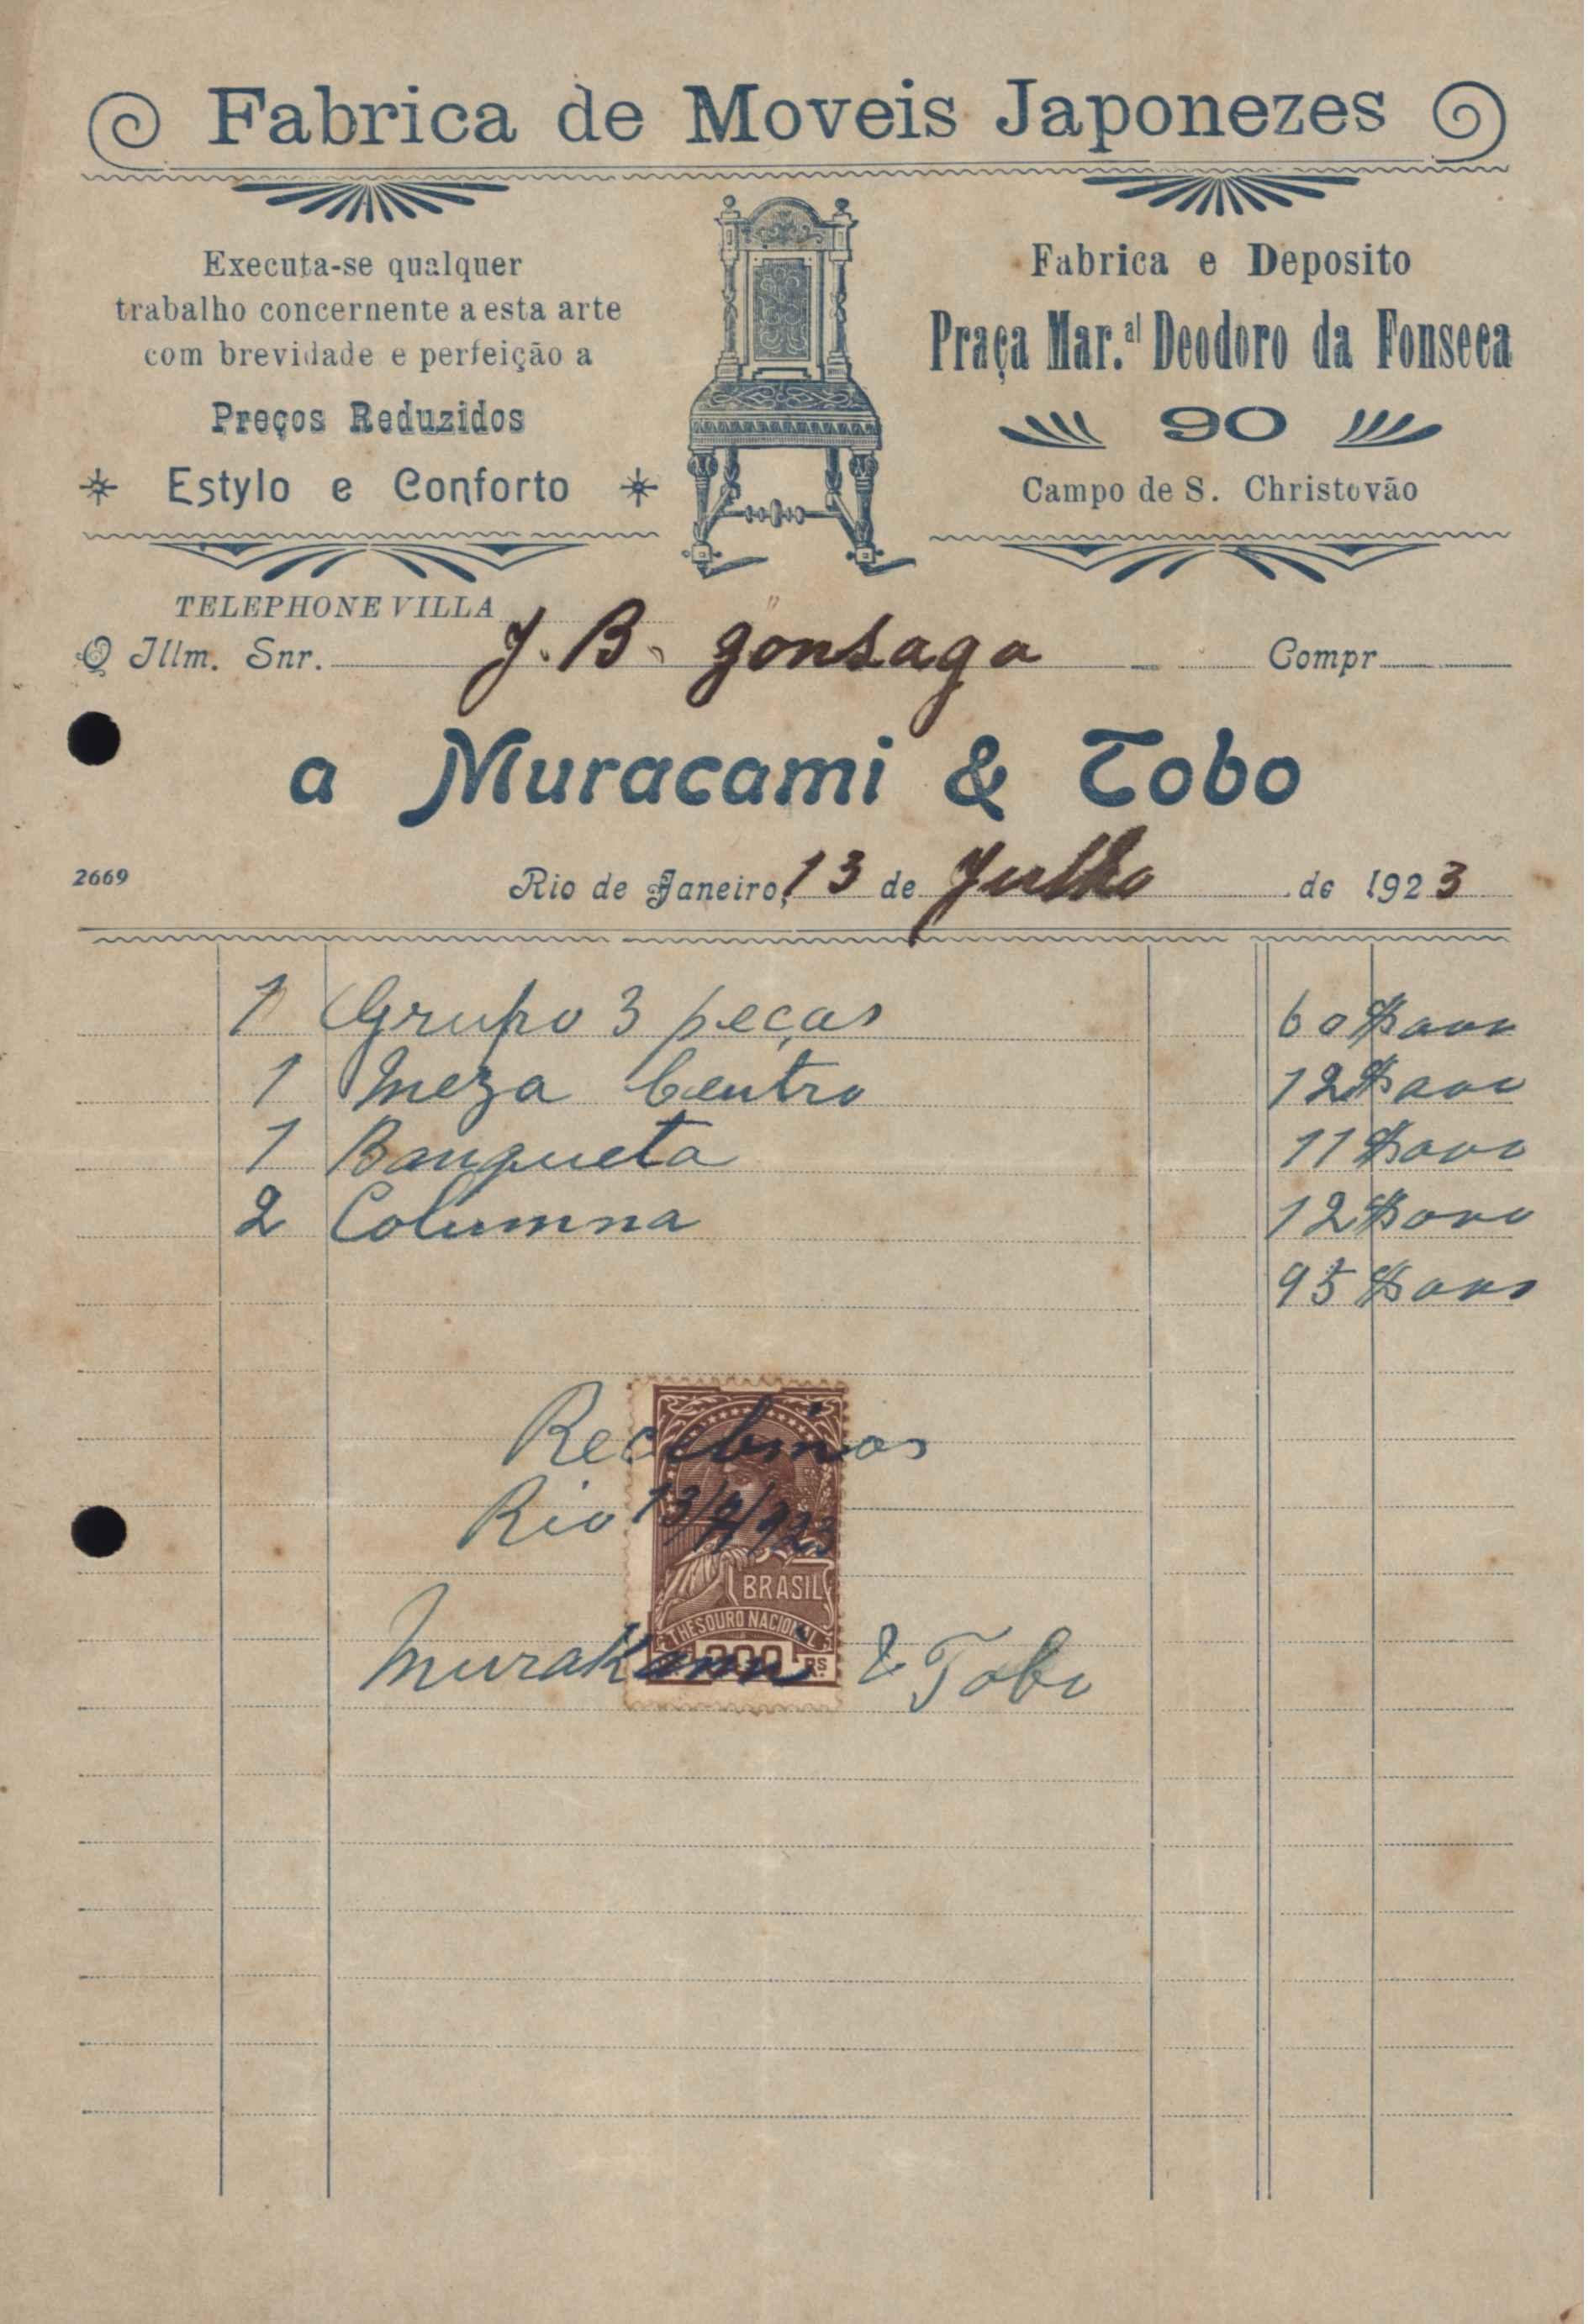 Fabrica de Moveis Japonezes
Executa-se qualquer
trabalho concernente a esta arte
com brevidade e perfeição a
Preços Reduzidos
Estylo e Conforto
Fabrica e Deposito
Praça Mar.al Deodoro da Fonseca
90
Campo de S. Christovão
TELEPHONE VILLA
O Illm. Snr. J. B. Gonsaga Compr
a Muracami & Tobo
2669 Rio de Janeiro, 13 de Julho de 1923
1 Grupo 3 peças 60$000
1 Meza Centro 12$000
1 Banqueta 11$000
2 Columna 12$000
95$000
Recebimos
Rio 13/7/923
BRASIL
THESOURO NACIONAL
Murakami & Tobo
300 RS